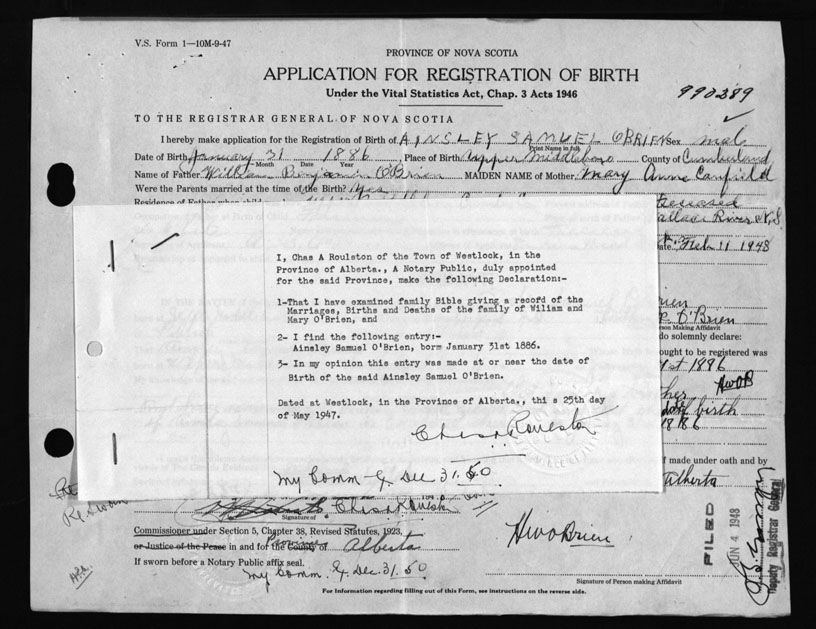 V.S. Form 1—10M-9-47
PROVINCE OF NOVA SCOTIA
APPLICATION FOR REGISTRATION OF BIRTH
Under the Vital Statistics Act, Chap. 3 Acts 1946
990289
TO THE REGISTRAR GENERAL OF NOVA SCOTIA
I hereby make application for the Registration of Birth of AINSLEY SAMUEL O'BRIEN Sex mal
Print Name in full
Date of Birth January 31 1886 Place of Birth Upper Middleboro County of Cumberland
Month Date Year
Name of Father William Benjamin O'Brien MAIDEN NAME of Mother Mary Anne Canfield
Were the Parents married at time of the Birth? Yes
Residence of Father when
Deceased
Wallace River N.S
Feb 11 1948
I, Chas A Roulston of the Town of Westlock, in the
Province of Alberta., A Notary Public, duly appointed
for the said Province, make the following Declaration:-
1-That I have examined family Bible giving a record of the
Marriages, Births and Deaths of the family of Wiliam and
Mary O'Brien, and
2- I find the following entry:-
Ainsley Samuel O'Brien, born January 31st 1886.
3- In my opinion this entry was made at or near the date of
Birth of the said Ainsley Samuel O'Brien.
Dated at Westlock, in the Province of Alberta., thi s 25th day
of May 1947.
Chas A Roulston
My Comm Ex Dec 31.50
O'Brien
Person Making Affidavit
do solemnly declare:
ought to be registered was
1st 1886
HWOB
of birth
1886
made under oath and by
Alberta
Signature of Chas A Roulston
Commissioner under Section 5, Chapter 38, Revised Statutes, 1923,
or Justice of the Peace in and for the County of Province Alberta
If sworn before a Notary Public affix seal.
My Comm. Ex Dec. 31.50
HWOBrien
Signature of Person making Affidavit
For Information regarding filling out of this Form, see instructions on the reverse side.
FILED
JUN 4 1948
Deputy Registrar General